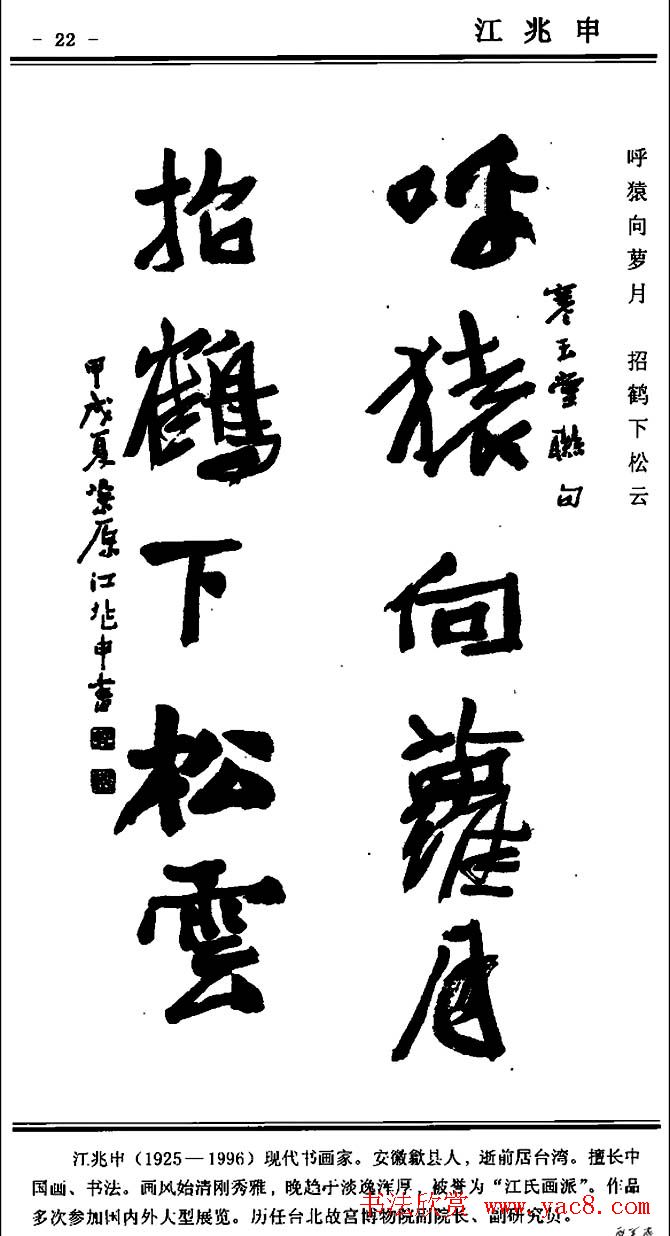 - 22 -
江兆申
呼猿向萝月 招鹤下松云
寒玉堂聯句
呼猿向蘿月
招鶴下松雲
甲戌夏江兆申書
江兆申(1925—1996)现代书画家。安徽歙县人,逝前居台湾。擅长中
国画、书法。画风始清刚秀雅,晚趋于淡逸浑厚,被誉为“江氏画派”。作品
多次参加国内外大型展览。历任台北故宫博物院副院长、副研究员。
书法欣赏 www.yac8.com